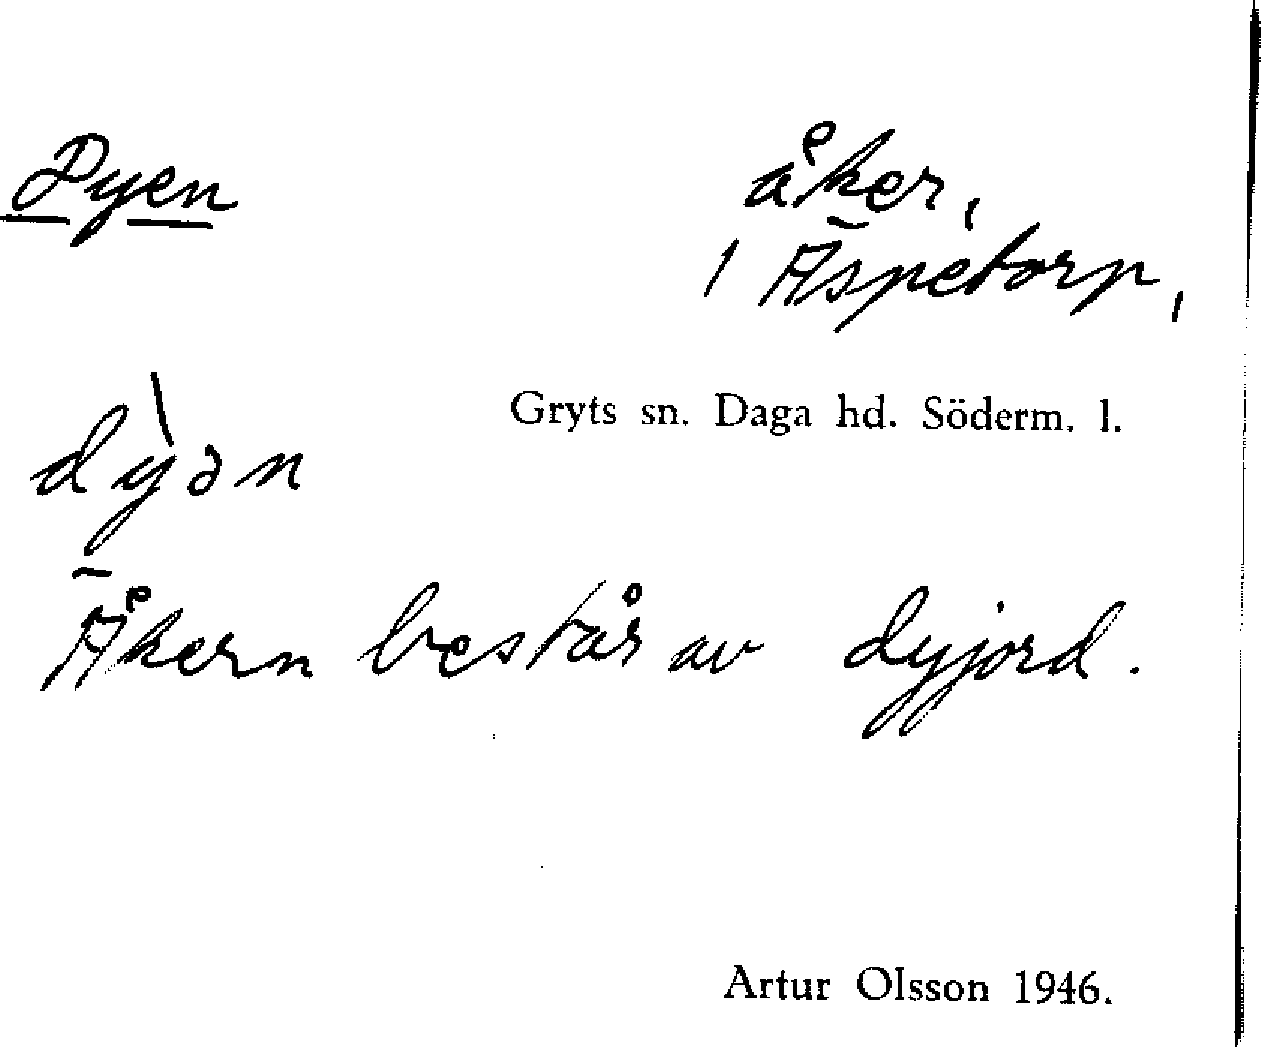 Dyen
åker,
1 Äspetorp,
Gryts sn. Daga hd. Söderm. l.
dỳən
Åkern består av dyjord.
Artur Olsson 1946.